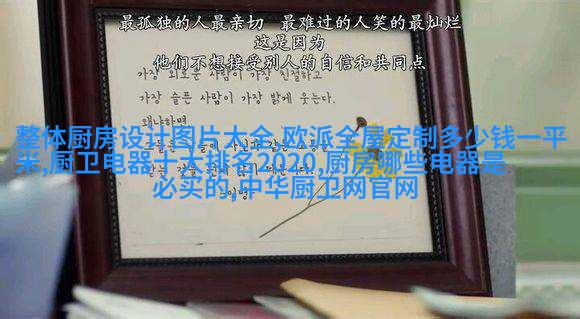 最孤独的人最亲切 最难过的人笑的最灿烂
这是因为
他们不想接受别人的自信和共同点
가장 외로운 사람이 가장 친절하고
가장 슬픈 사람이 가장 밝게 웃는다.
왜냐하면
整体厨房设计图片大全,欧派全屋定制多少钱一平
米,厨卫电器十大排名2020,厨房哪些电器是
必买的,中华厨卫网官网